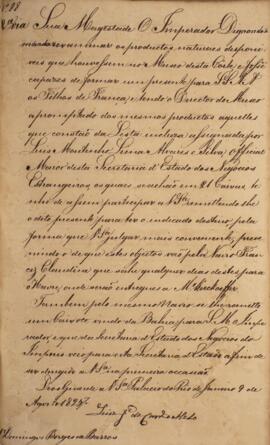 Nº 88
Sua Magestade O Imperador Dignando-se
mandar examinar os productos naturaes disponi
veis que houvessem no Museo desta Corte, e fossem
capazes de formar um presente para S.S. A.A.
os Filhos de França, e tendo o Director do Museo
apromptado dos mesmos productos aquelles
que constão da Lista incluza assignada por
Luis Moutinho Lima Alvares e Silva, Official
Maior desta Secretaria d'Estado dos Negocios
Estrangeiros, os quaes se achão em 21 Caixas, te
nho de assim participar a VSª remettendo lhe
o dito presente para ter o indicado destino pela
forma que VSª julgar mais conveniente, preve
nindo o de que estes objectos vão pelo Navio Fran
cez Claudine que sahe qualquer dia destes para
o Havre, onde serão entregues a Mr
Tambem pelo mesmo Navio se lhe remette
um Caixote vindo da Bahia para S. M. o Impe
rador, e que da Secretaria d'Estado dos Negocios do
Imperio veio para esta Secretaria d'Estado a fim de
ser dirigido a VSª na primeira occasião.
Deos Guarde a VSª Palacio do Rio de Janeiro 9 de
Agosto de 1824
Luiz Jé de Carvº e Mello
Domingos Borges de Barros